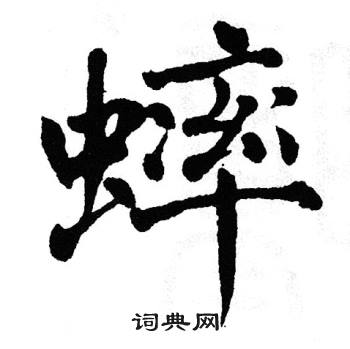 蟀
词典网